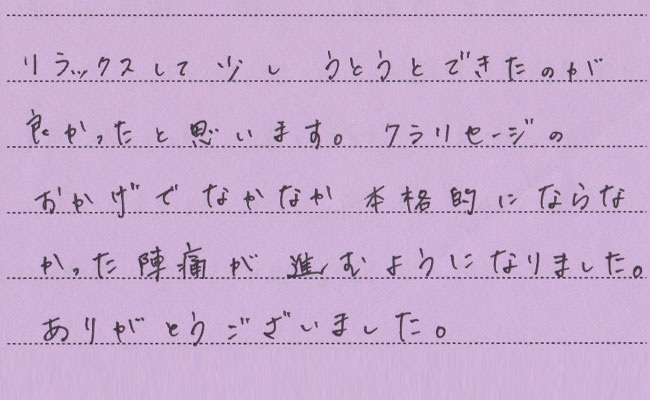 リラックスして少し うとうとできたのが
良かったと思います。クラリセージの
おかげでなかなか本格的にならな
かった陣痛が進むようになりました。
ありがとうございました。